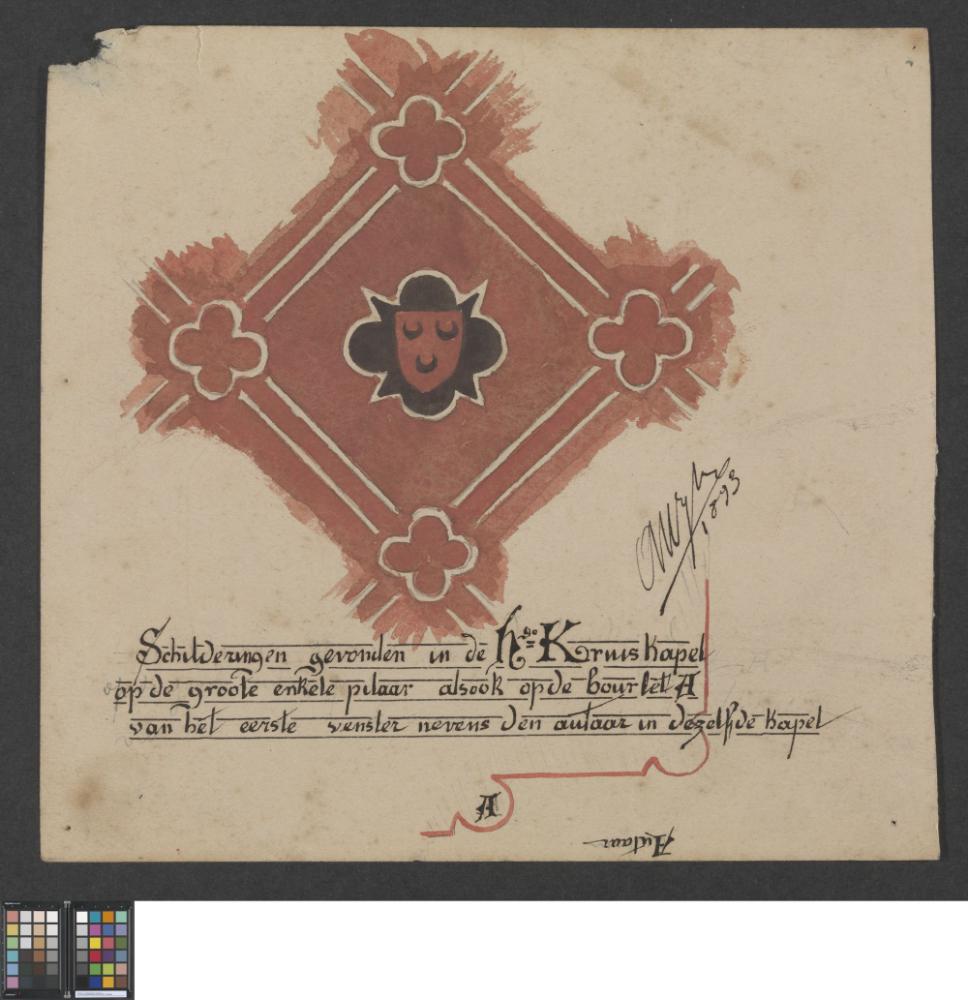 1893
Schilderingen gevonden in de h.ge Kruis Kapel
op de groote enkele pilaar alsook op de bourlet A
van het eerste venster nevens den autaar in dezelfde Kapel
A
Autaar